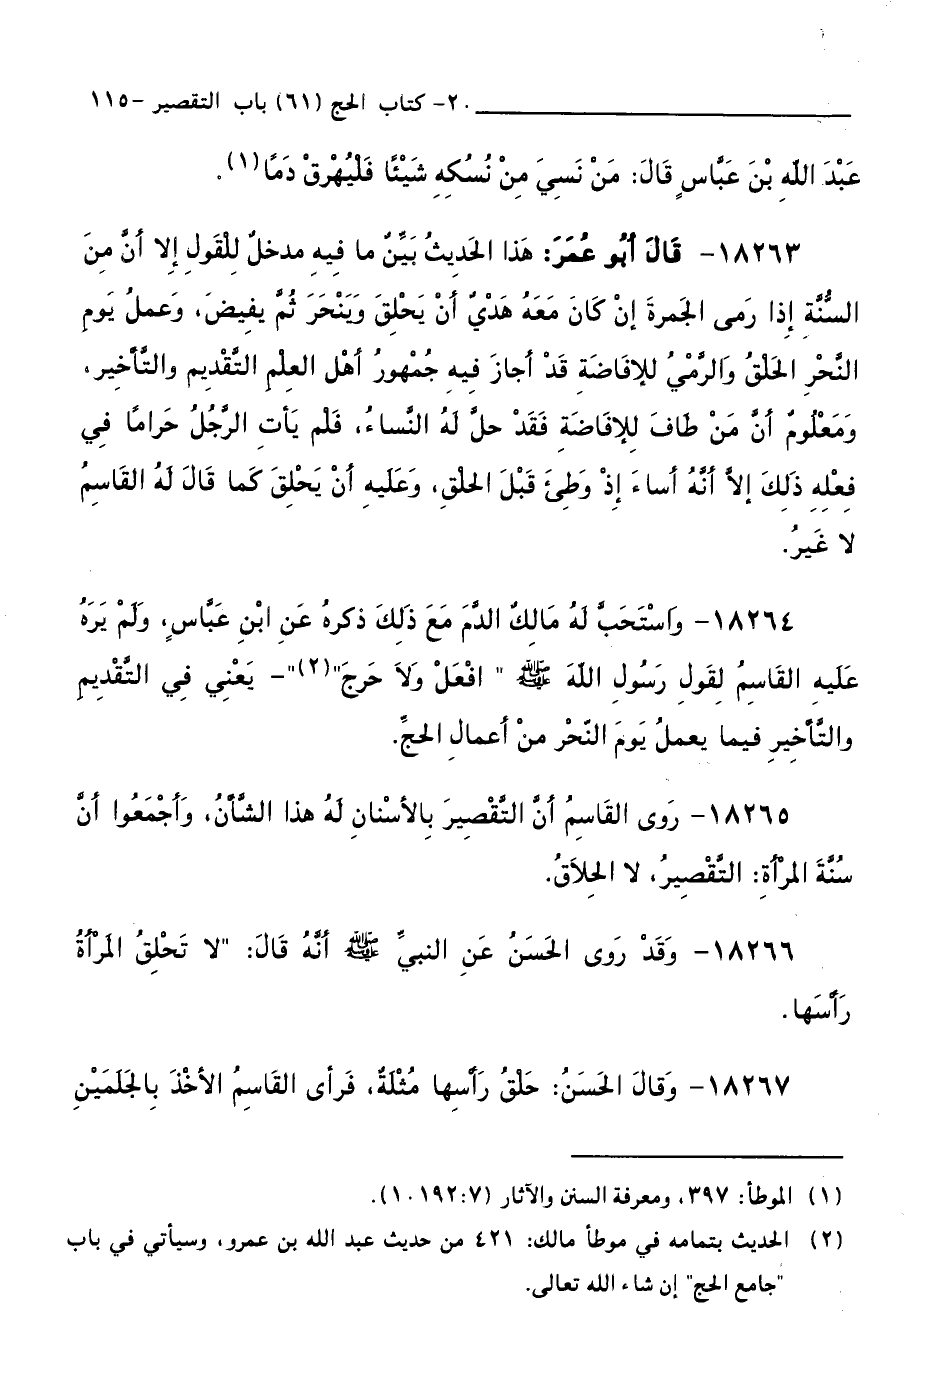 ٢٠- كتاب الحج (٦١) باب التقصير -١١٥
عَبْدَ اللَّهِ بْنَ عَبَّاسٍ قَالَ: مَنْ نَسِيَ مِنْ نُسُكِهِ شَيْئًا فَلْيُهْرِقْ دَمًا(١).
١٨٢٦٣- قَالَ أَبُو عُمَرَ: هَذَا الحَديثُ بَيِّنٌ ما فيهِ مدخلٌ للْقَولِ إلا أنَّ مِنَ
السُّنَّةِ إذا رَمَى الجَمرةَ إنْ كَانَ مَعَهُ هَدْيٌ أنْ يَحْلِقَ وَيَنْحَرَ ثُمَّ يفيضَ، وَعملُ يَومِ
النَّحْرِ الحَلْقُ وَالرَّمْيُ للإفَاضَةِ قَدْ أجازَ فيهِ جُمْهورُ أهْلِ العِلْمِ التَّقْديمِ والتَّأخيرِ،
وَمَعْلُومٌ أنَّ مَنْ طَافَ للإفَاضَةِ فَقَدْ حلَّ لَهُ النَّساءُ، فَلْم يَأتِ الرَّجُلُ حَرامًا في
فعْلِهِ ذَلِكَ إلاَّ أنَّهُ أساءَ إذْ وَطِئَ قَبْلَ الحلْقِ، وَعَلَيهِ أنْ يَحْلِقَ كَما قَالَ لَهُ القَاسِمُ
لا غَيرُ.
١٨٢٦٤- وَاسْتَحَبَّ لَهُ مَالِكٌ الدَّمَ مَعَ ذَلِكَ ذكرهُ عَنِ ابْنِ عَبَّاسٍ، وَلَمْ يَرَهُ
عَلَيهِ القَاسِمُ لقَولِ رَسُولِ اللَّهَ ﷺ " افْعَلْ وَلاَ حَرجَ"(٢)"- يَعْنِي فِي التَّقْديمِ
والتَّأخيرِ فيما يعملُ يَومَ النَّحْرِ منْ أعمالِ الحجِّ.
١٨٢٦٥- رَوى القَاسِمُ أنَّ التَّقْصيرَ بالأسْنانِ لَهُ هذا الشَّأنُ، وَأجْمَعُوا أنَّ
سُنَّةَ المرْأةِ: التَّقْصيرُ، لا الحِلاَقُ.
١٨٢٦٦- وَقَدْ رَوى الحَسَنُ عَنِ النبيِّ ﷺ أنَّهُ قَالَ: "لا تَحْلِقُ المَرْأةُ
رَأسَها.
١٨٢٦٧- وَقالَ الحَسَنُ: حَلْقُ رَأسِها مُثْلَةٌ، فَرأى القَاسِمُ الأخْذَ بِالجَلَمَيْنِ
(١) الموطأ: ٣٩٧، ومعرفة السنن والآثار (١٠١٩٢:٧).
(٢) الحديث بتمامه في موطأ مالك: ٤٢١ من حديث عبد الله بن عمرو، وسيأتي في باب
"جامع الحج" إن شاء الله تعالى.